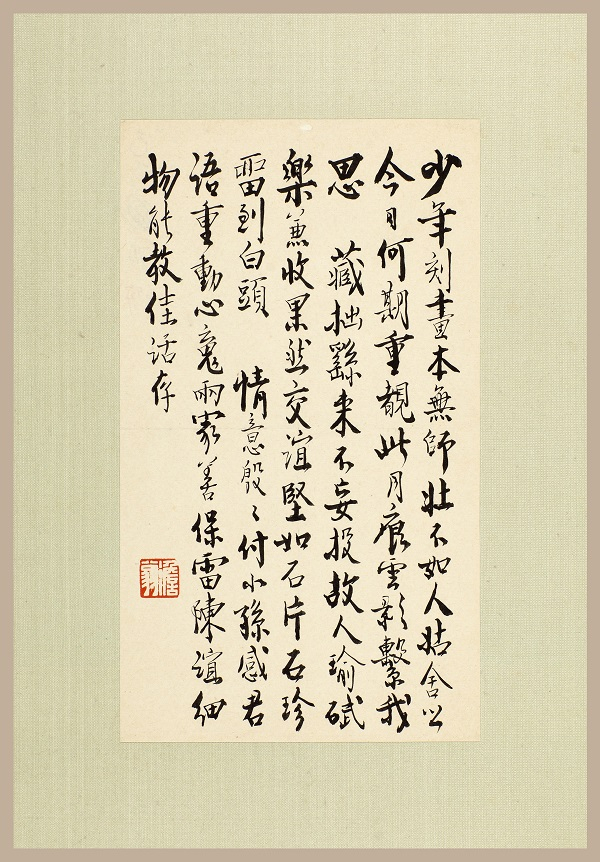 少年刻畫本無師壯不如人姑舍之
今日何期重覩此月痕雲影繫我
思　藏拙繇来不妄投故人瑜碔
樂兼收果然交誼堅如石片石珍
畱到白頭　情意殷〻付小孫感君
語重動心䰟兩家善保雷陳誼細
物能教佳話存